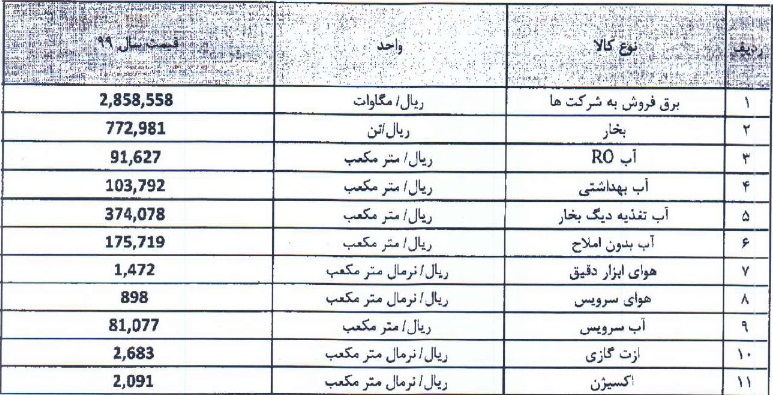 ردیف نوع کالا واحد قیمت سال ۹۹
۱ برق فروش به شرکت ها ریال/مگاوات 2,858,558
۲ بخار ریال/تن 772,981
۳ آب RO ریال/متر مکعب 91,627
۴ آب بهداشتی ریال/متر مکعب 103,792
۵ آب تغذیه دیگ بخار ریال/متر مکعب 374,078
۶ آب بدون املاح ریال/متر مکعب 175,719
۷ هوای ابزار دقیق ریال/نرمال متر مکعب 1,472
۸ هوای سرویس ریال/نرمال متر مکعب 898
۹ آب سرویس ریال/متر مکعب 81,077
۱۰ ازت گازی ریال/نرمال متر مکعب 2,683
۱۱ اکسیژن ریال/نرمال متر مکعب 2,091